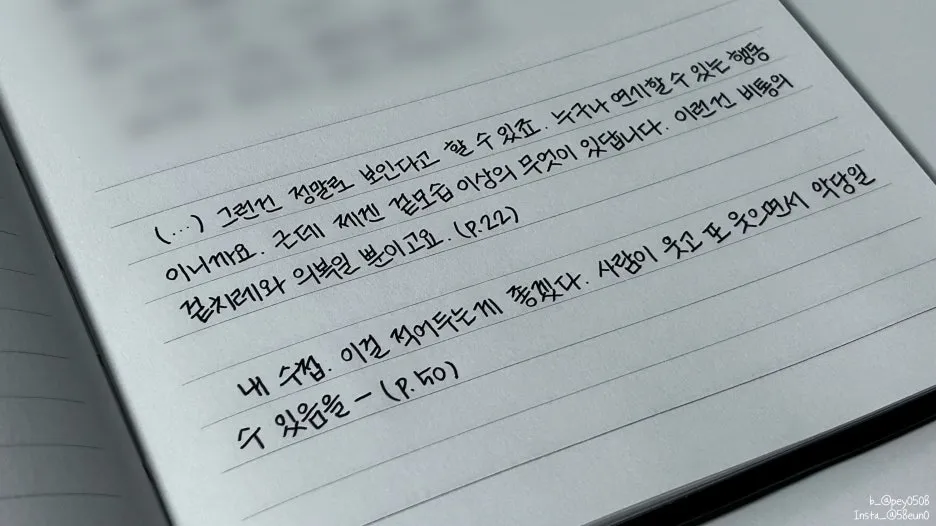 (...) 그런건 정말로 보인다고 할 수 있죠. 누구나 연기할 수 있는 행동
이니까요. 근데 제겐 겉모습 이상의 무엇이 있답니다. 이런건 비통의
겉치레와 의복일 뿐이고요. (p.22)
내 수첩. 이걸 적어두는게 좋겠다. 사람이 웃고 또 웃으면서 악당일
수 있음을 - (p.50)
b_@pey0508
Insta_@58eun0